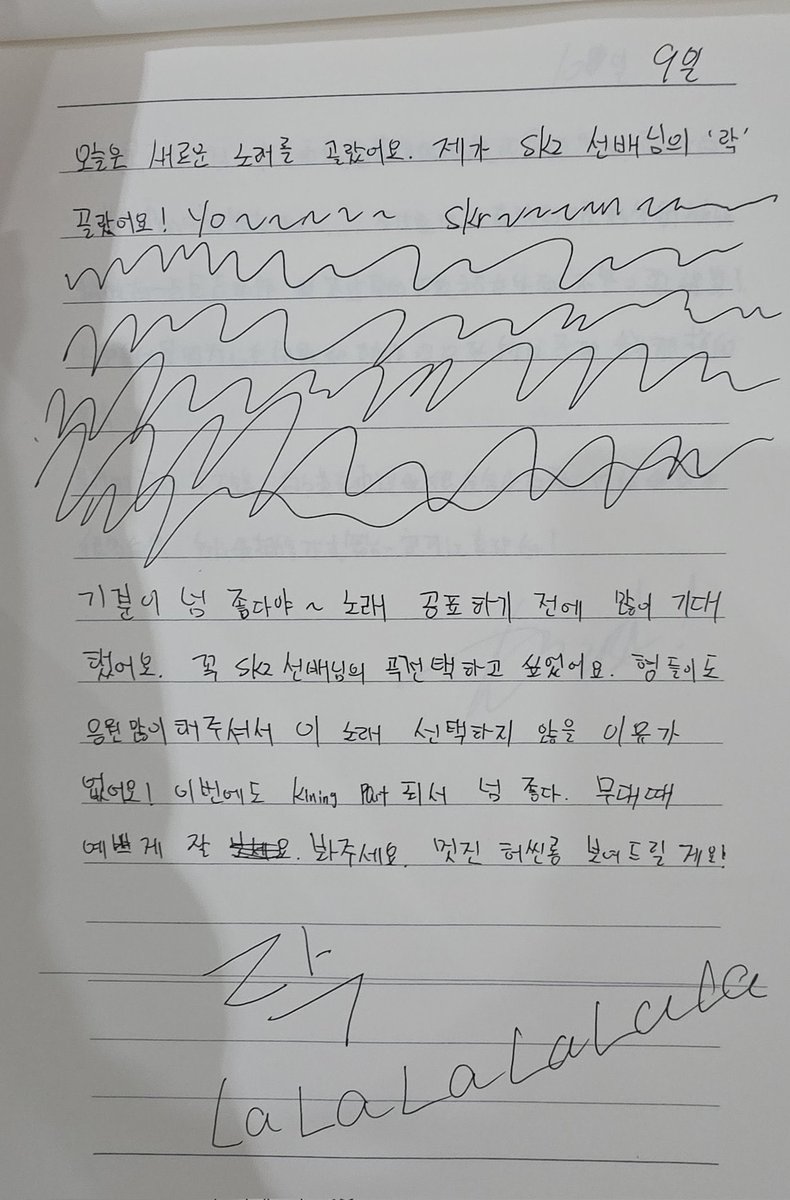 9일
오늘은 새로운 노래를 골랐어요. 제가 SKZ 선배님의 '락'
골랐어요! YO~~~~~ Skr~~~~~
기분이 넘 좋다야~ 노래 공포하기 전에 많이 기대
했어요. 꼭 SKZ 선배님의 곡선택하고 싶었어요. 형들이도
응원 많이 해주셔서 이 노래 선택하지 않을 이유가
없어요! 이번에도 Killing Part 되서 넘 좋다. 무대때
예쁘게 잘 봐주세요. 멋진 허씬롱 보여드릴게요!
락
La La La La La La La